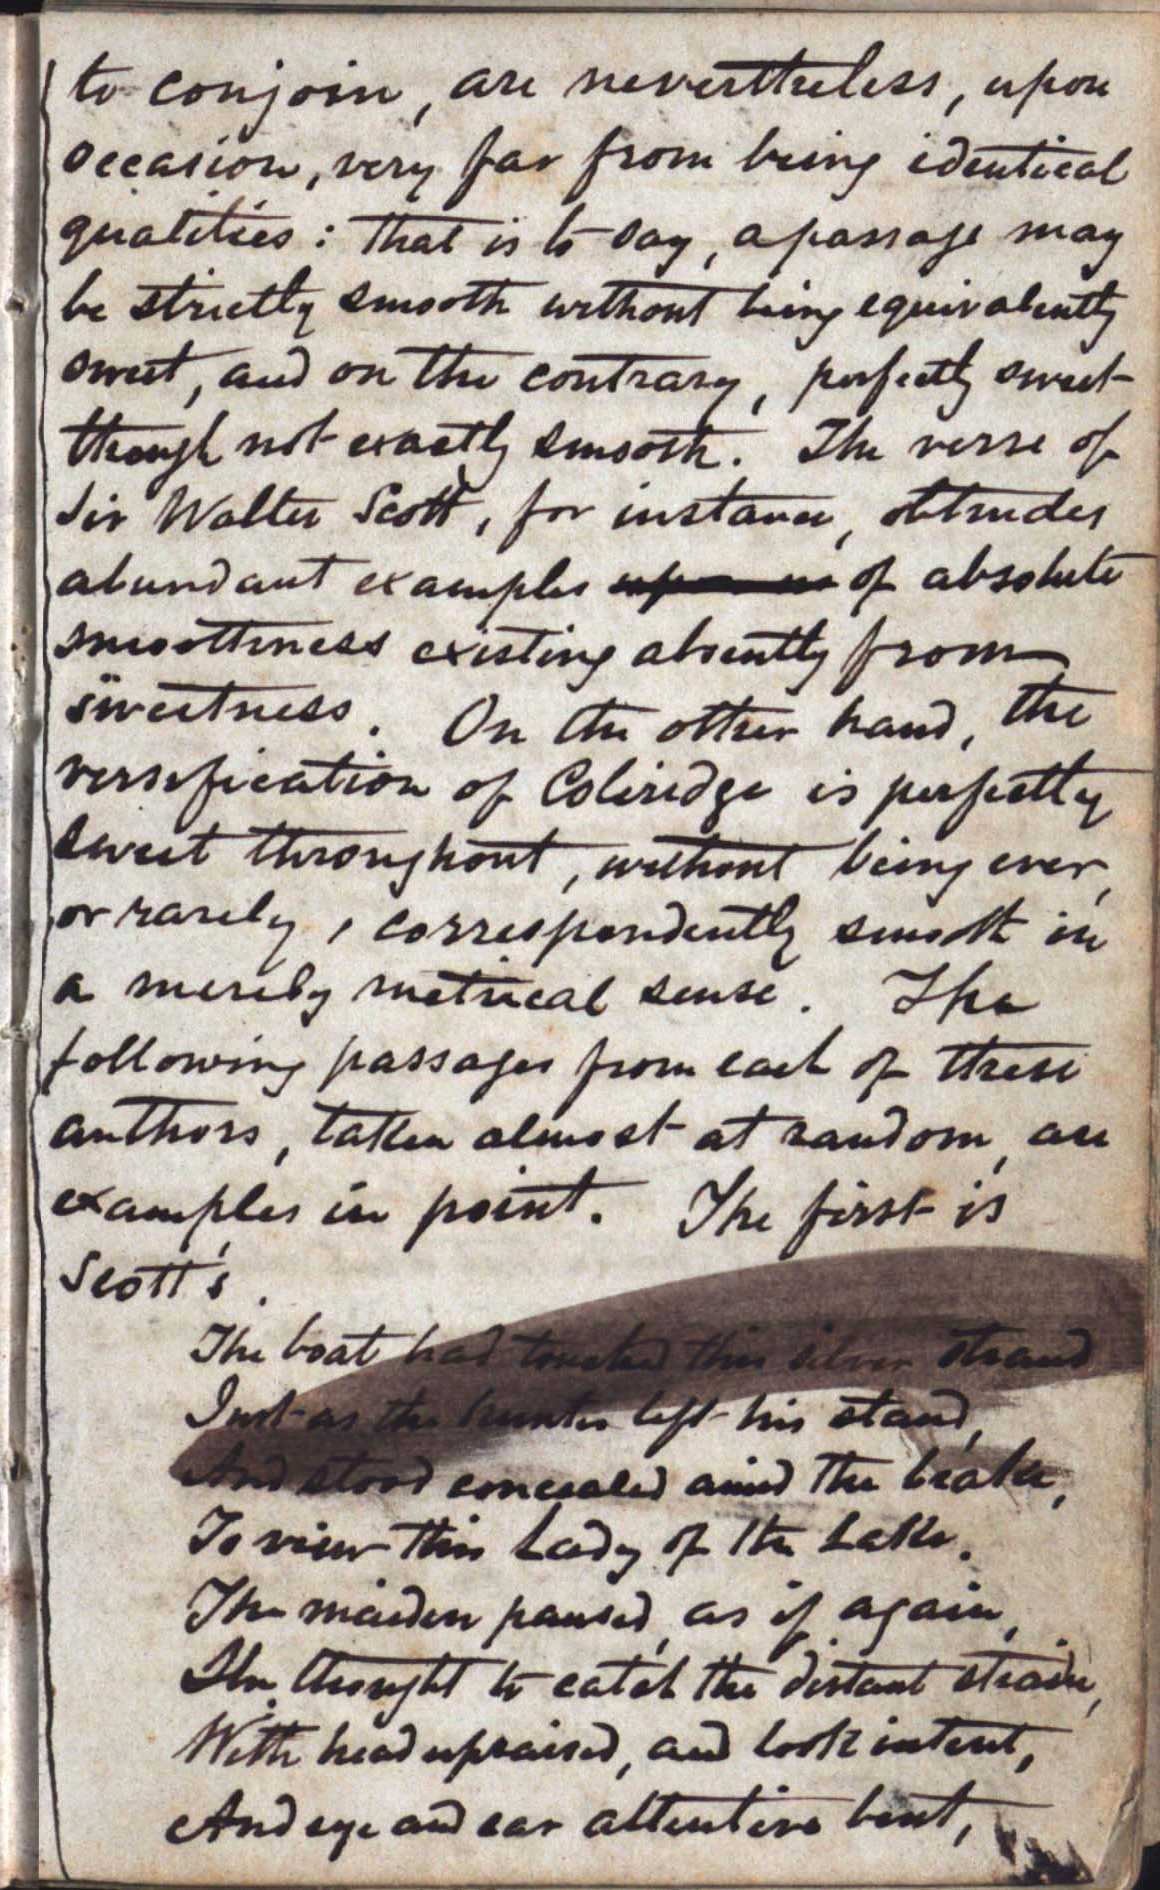 to conjoin, are nevertheless, upon
occasion, very far from being identical
qualities: that is to say, a passage may
be strictly smooth without being equivalently
sweet, and on the contrary, perfectly sweet
though not exactly smooth. The verse of
Sir Walter Scott, for instance, obtrudes
abundant examples upon us of absolute
smoothness existing absently from
sweetness. On the other hand, the
versification of Coleridge is perfectly
sweet throughout, without being ever,
or rarely, correspondently smooth in
a merely metrical sense. The
following passages from each of these
authors, taken almost at random, are
examples in point. The first is
Scott's.
The boat had touched this silver strand
Just as the hunter left his stand,
And stood concealed amid the brake,
To view this Lady of the Lake.
The maiden paused, as if again,
She thought to catch the distant strain,
With head upraised, and look intent,
And eye and ear attentive bent,